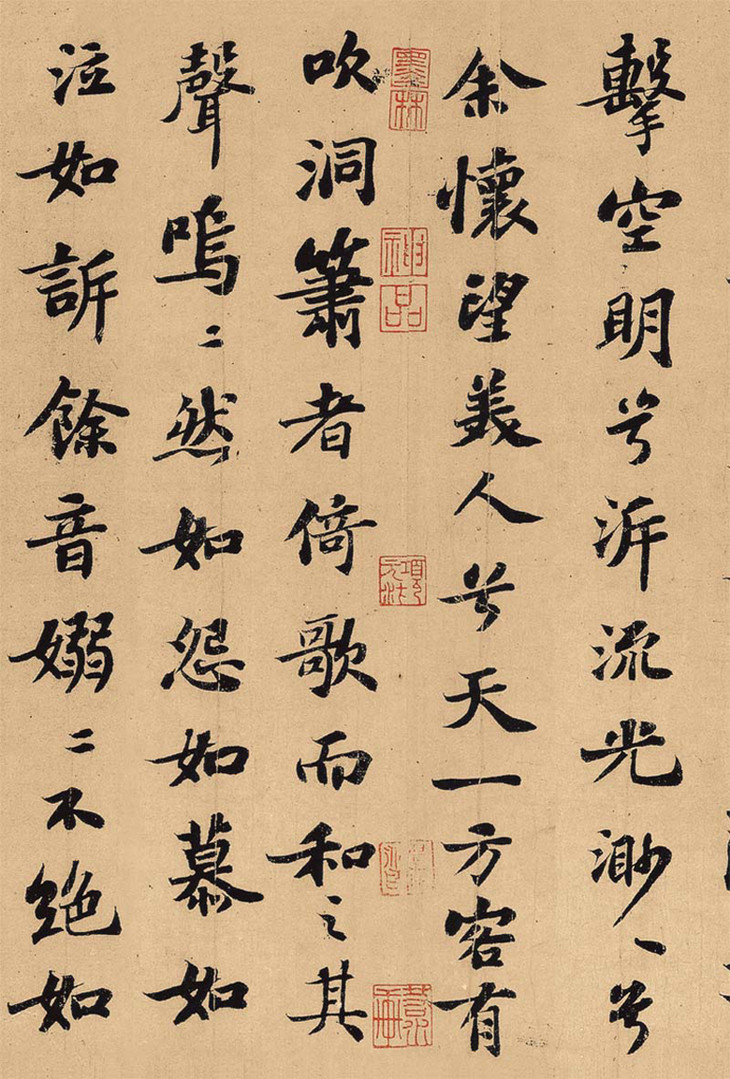 擊空明兮泝流光渺丶兮
余懷望美人兮天一方客有
墨林
神品
吹洞簫者倚歌而和之其
聲嗚〻然如怨如慕如
泣如訴餘音嫋〻不絶如